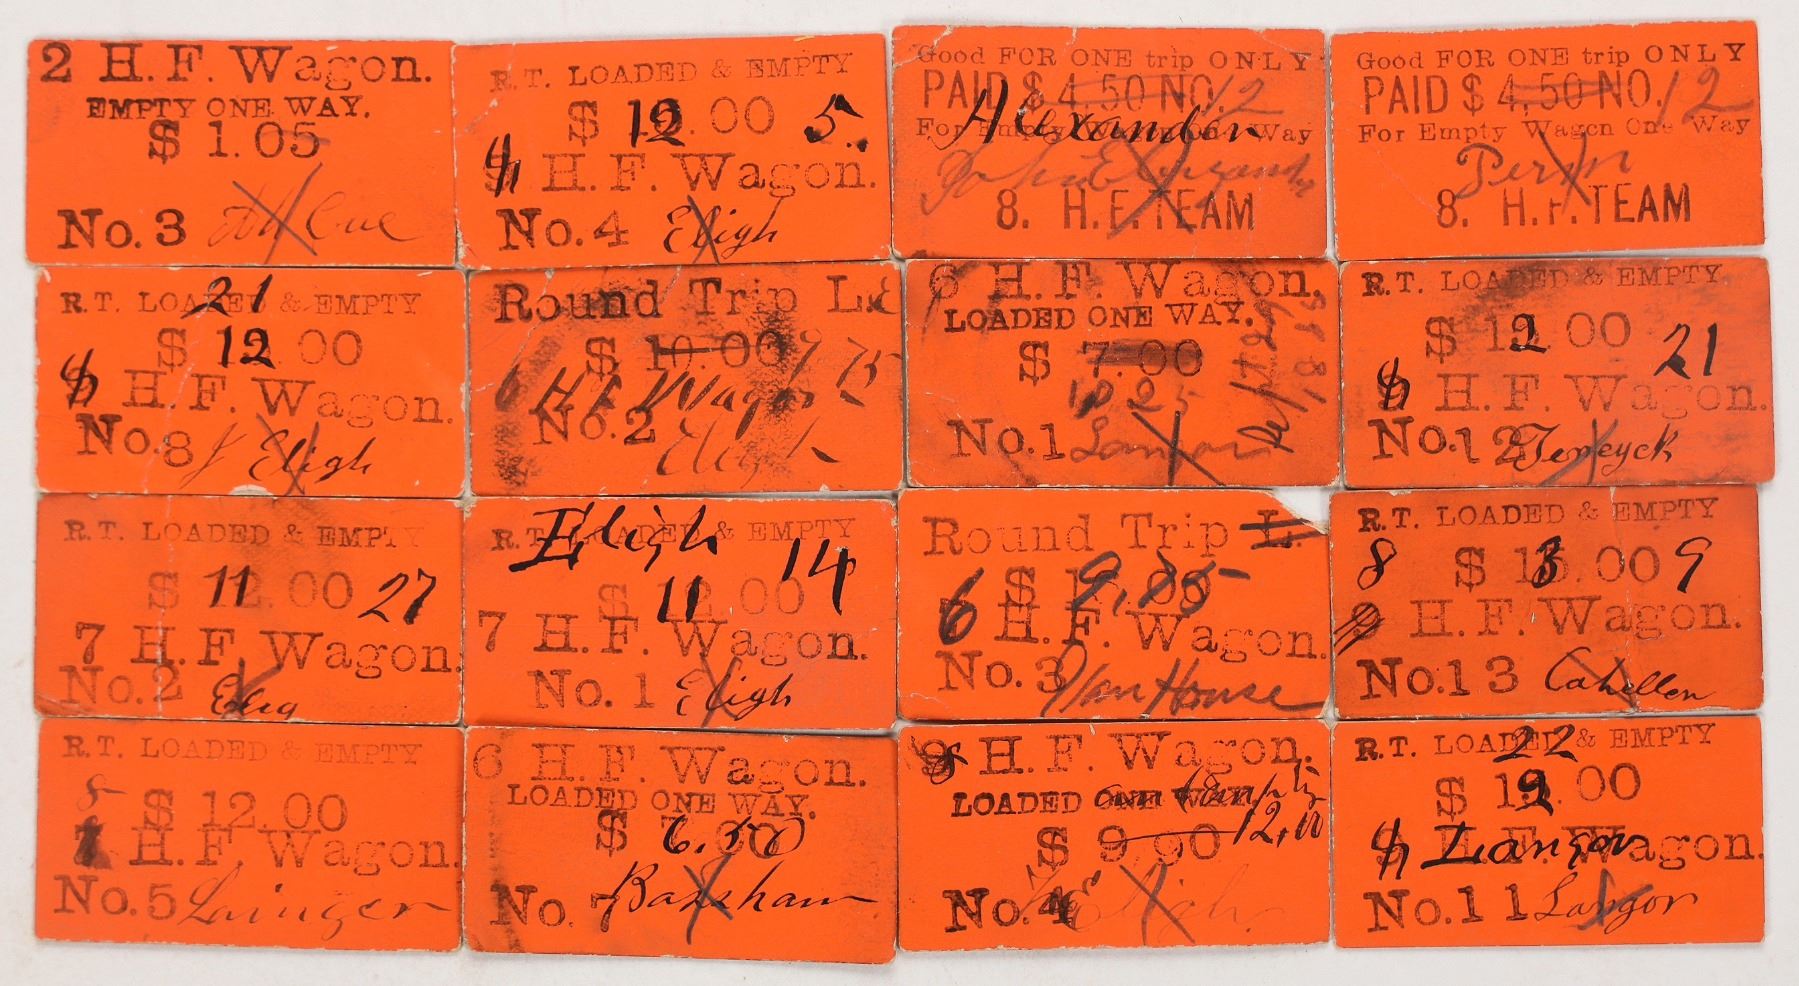 2 H. F. Wagon.
EMPTY ONE WAY.
$ 1.05
No. 3
R.T. LOADED & EMPTY
$ 12.00 5.
H. F. Wagon.
No. 4 Eligh
Good FOR ONE trip ONLY
PAID $ 4,50 NO. 12
Alexander
For Empty Wagon One Way
8. H.F. TEAM
Good FOR ONE trip ONLY
PAID $ 4,50 NO. 12
For Empty Wagon One Way
Perin
8. H.F. TEAM
R.T. LOADED & EMPTY
21
$ 12.00
H. F. Wagon.
No. 8 J Eligh
Round Trip L.E
$ 10.00 9 75
6 H F Wagon
No. 2 Eligh
6 H. F. Wagon.
LOADED ONE WAY.
$ 7 00
10 25
No. 1 Langor
Sept. 29 1881
R.T. LOADED & EMPTY
$ 12 00 21
H. F. Wagon.
No. 12 Teneyck
R.T. LOADED & EMPTY
$ 11.00 27
7 H. F. Wagon.
No. 2
R.T. LOADED & EMPTY
Eligh
14
$ 11.00
7 H. F. Wagon.
No. 1 Eligh
Round Trip L.
$ 9,75
6 H. F. Wagon.
No. 3 Van House
R.T. LOADED & EMPTY
8 $ 13.00 9
9 H. F. Wagon.
No. 13 Cahellen
R.T. LOADED & EMPTY
8
$ 12.00
H. F. Wagon.
No. 5
6 H. F. Wagon.
LOADED ONE WAY.
$ 7.00 6.50
No. 7 Barsham
8 H. F. Wagon.
LOADED ONE WAY. Empty
$ 9 00 12,00
No. 4 Eligh
R.T. LOADED & EMPTY
22
$ 12.00
H. F. Wagon.
Langor
No. 11 Langor